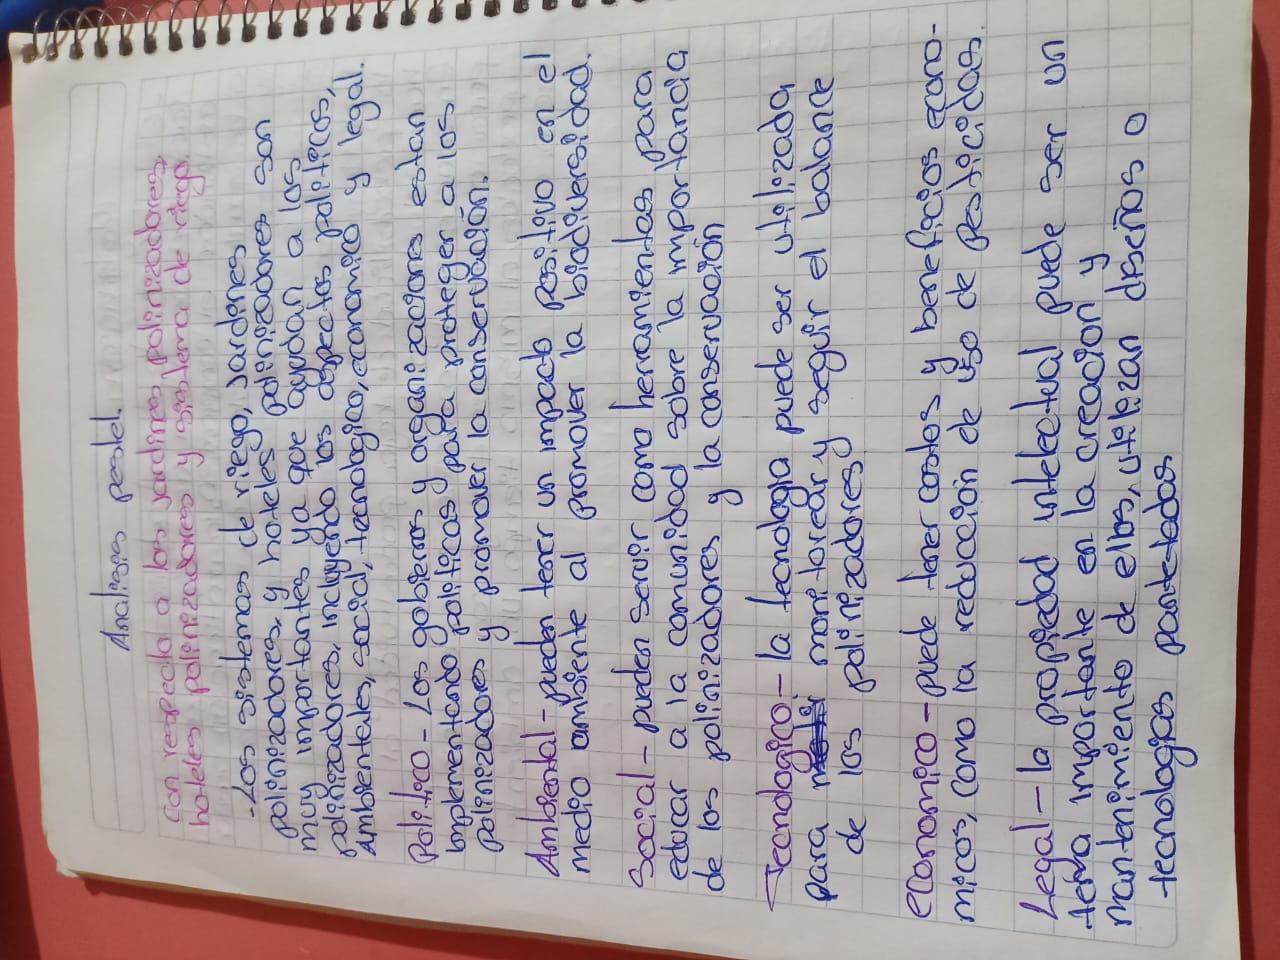 Analisis pestel.
Con respecto a los jardines polinizadores,
hoteles polinizadores y sistema de riego.
-Los sistemas de riego, jardines
polinizadores, y hoteles polinizadores son
muy importantes ya que ayudan a los
polinizadores, incluyendo los aspectos politicos,
Ambientales, social, tecnologico, economico y legal.
Politico - Los gobiernos y organizaciones estan
implementando politicas para proteger a los
polinizadores y promover la conservación.
Ambiental - pueden tener un impacto positivo en el
medio ambiente al promover la biodiversidad.
Social - pueden servir como herramientas para
educar a la comunidad sobre la importancia
de los polinizadores y la conservación
Tecnologico - la tecnologia puede ser utilizada
para monitorear y seguir el balance
de los polinizadores
economico - puede tener costos y beneficios econo-
micos, como la reducción de uso de pesticidas.
Legal - la propiedad intelectual puede ser un
tema importante en la creación y
mantenimiento de ellos, utilizan diseños o
tecnologias pantetadas